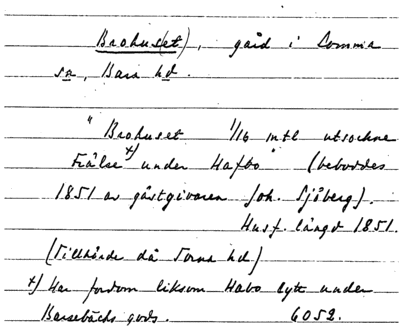 Brohus(et), gård i Lomma
sn, Bara hd.
"Brohuset 1/16 mtl utsockne
Frälse +) under Hafbo" (beboddes
1851 av gästgivaren Joh. Sjöberg).
Husf. längd 1851.
(Tillhörde då Torna hd)
+) Har fordom liksom Habo lytt under
Barsebäcks gods. 6052.